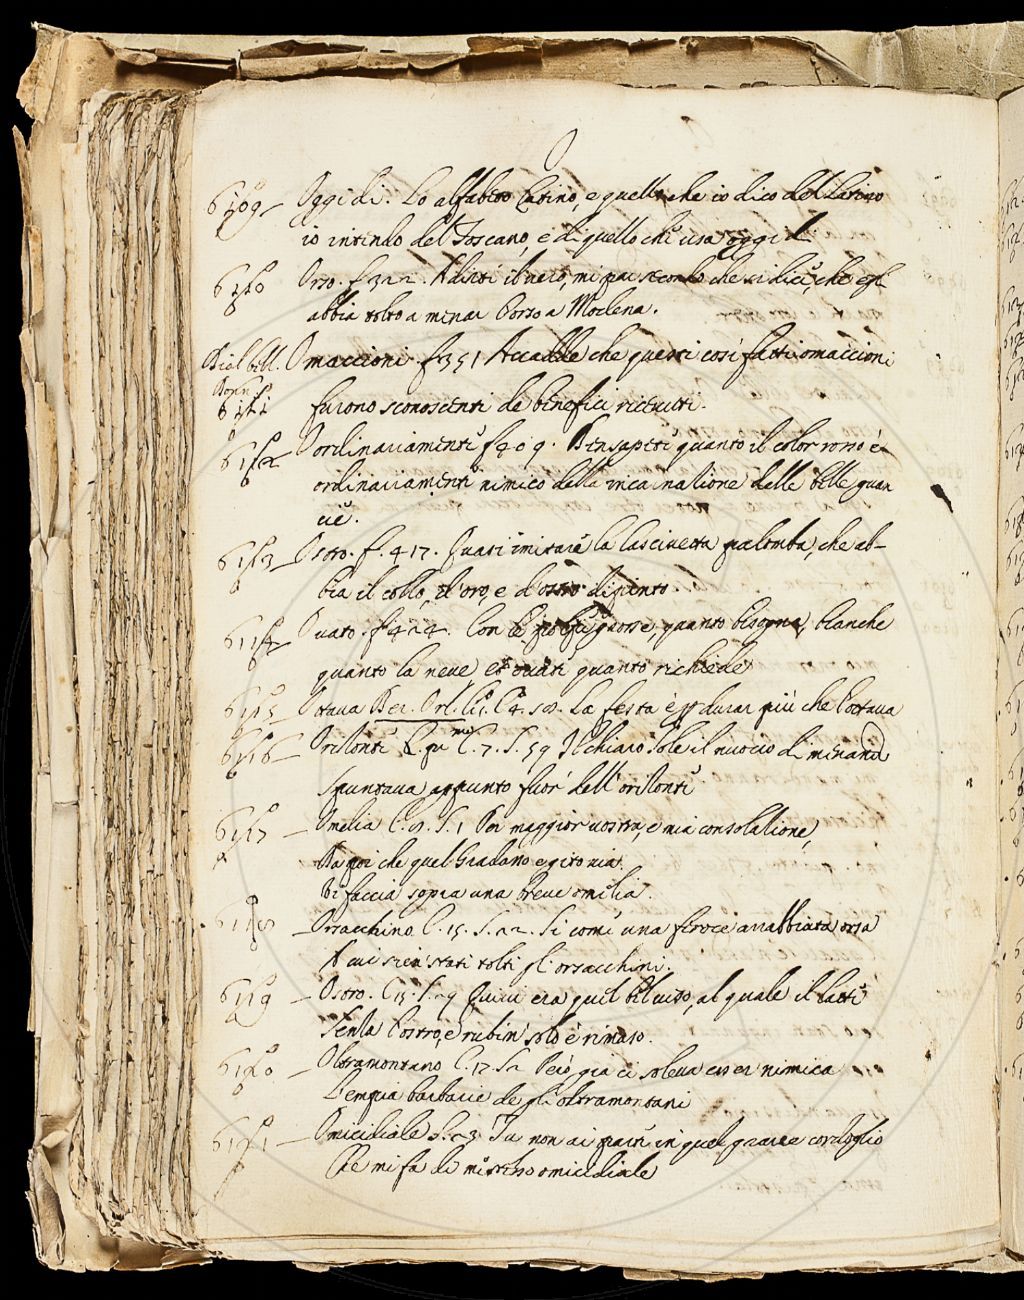 O
6109 Oggi dì. Lo alfabeto Latino, e quello che io dico del Latino
io intendo del Toscano, e di quello chi usa oggi dì
6110 Orso. f. 322. A dirti il vero, mi par secondo che si dice, che egli
abbia tolto a menar l'orso a Modena.
Omaccioni f. 351 Accadde che questi così fatti omaccioni
6111 furono sconoscenti de benefici ricevuti.
6112 Ordinariamente f. 409. Ben sapete quanto il color rosso è
ordinariamente nimico della incarnazione delle belle guan
cie.
6113 Ostro. f. 417. Quasi imitare la lascivetta palomba, che ab-
bia il collo, d'oro, e d'ostro dipinto
6114 Ovato. f. 424. Con le grosse, quanto bisogna, bianche
quanto la neve, et ovate quanto richiede
6115 Ottava Ber. Orl. La festa è per durar più che l'ottava
6116 Orizonte C. 7. S. 59 Il chiaro Sole il nuovo dì menando
Spuntava appunto fuor dell'orizonte
6117 Omelia S. 1 Per maggior vostra, e mia consolazione,
Da poi che quel Gradasso egito via.
Vi faccia sopra una breve omelia.
6118 Orsacchino C. 15. S. 22. Sì come una feroce arrabbiata orsa
A cui sien stati tolti gli orsacchini.
6119 Ostro. C. 15. Quivi era quel bel viso, al quale il latte
Senza l'ostro, e rubin' solo è rimaso.
6120 Oltramontano C. 17. S. 2 Però già ci soleva esser nimica
L'empia barbarie de gli oltramontani
6121 Omicidiale S. 23 Tu non ai parte in quel grave cordoglio
Che mi fa di me stesso omicidiale